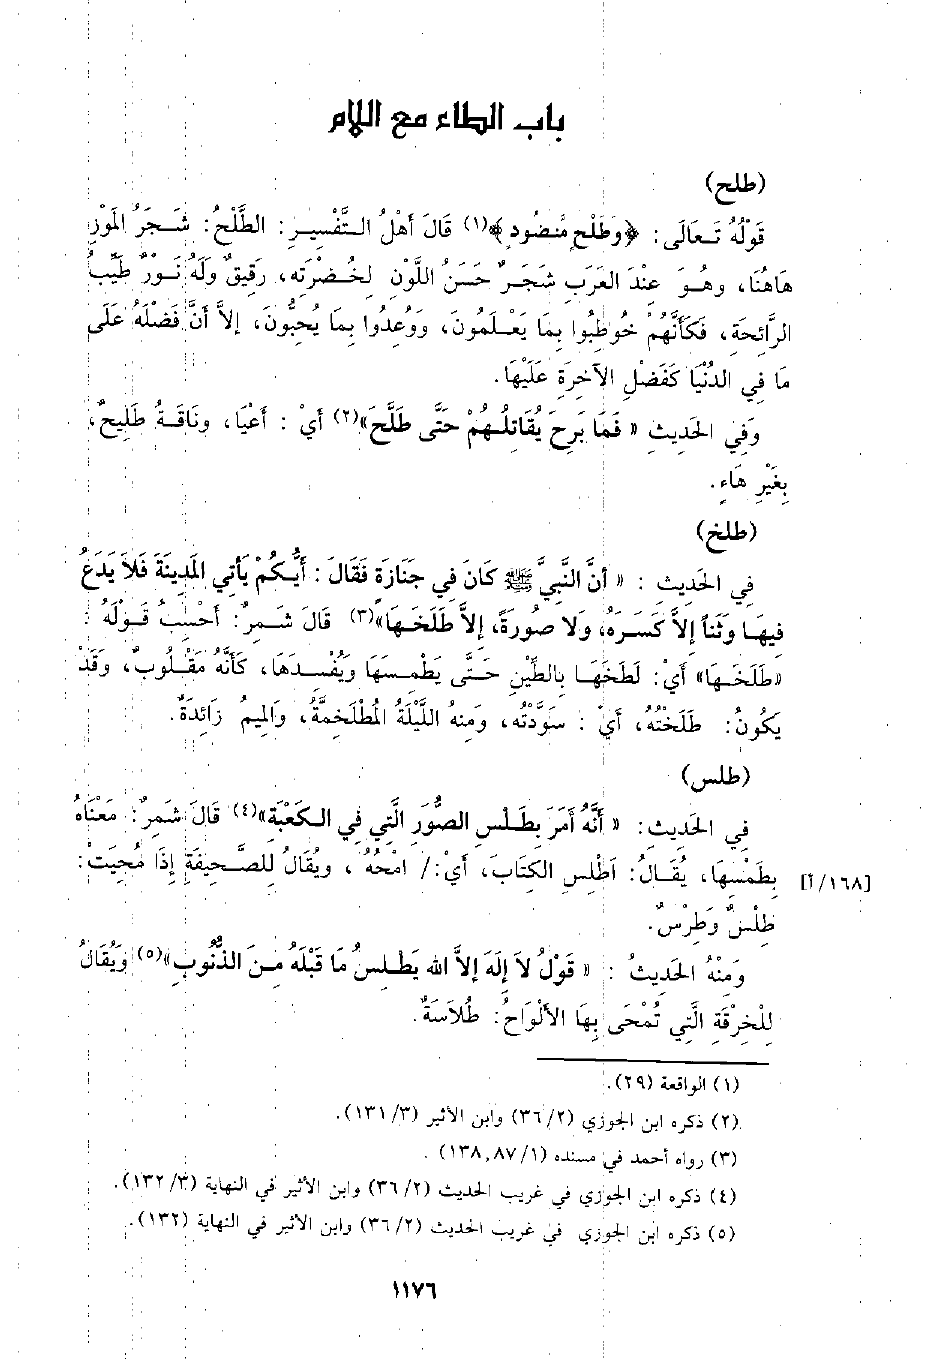 باب الطاء مع اللام
(طلح)
قَوْلُهُ تَعَالَى: ﴿وَطَلْحٍ مَّنضُودٍ﴾(١) قَالَ أَهْلُ التَّفْسِيرِ: الطَّلْحُ: شَجَرُ المَوْزِ
هَاهُنَا، وهُوَ عِنْدَ العَرَبِ شَجَرٌ حَسَنُ اللَّوْنِ لِخُضْرَتِهِ، رَقِيقٌ وَلَهُ نَوْرٌ طَيِّبُ
الرَّائِحَةِ، فَكَأَنَّهُمْ خُوطِبُوا بِمَا يَعْلَمُونَ، وَوُعِدُوا بِمَا يُحِبُّونَ، إلاَّ أَنَّ فَضْلَهُ عَلَى
مَا فِي الدُّنْيَا كَفَضْلِ الآخِرَةِ عَلَيْهَا.
وَفِي الحَدِيثِ « فَمَا بَرِحَ يُقَاتِلُهُمْ حَتَّى طَلَّحَ»(٢) أَيْ : أَعْيَا، ونَاقَةٌ طَلِيحٌ،
بِغَيْرِ هَاءٍ.
(طلخ)
فِي الحَدِيثِ : « أَنَّ النَّبِيَّ ﷺ كَانَ فِي جَنَازَةٍ فَقَالَ : أَيُّكُمْ يَأْتِي المَدِينَةَ فَلاَ يَدَعُ
فِيهَا وَثَناً إلاَّ كَسَرَهُ، وَلا صُورَةً، إلاَّ طَلَخَهَا»(٣) قَالَ شَمِرٌ: أَحْسِبُ قَوْلَهُ :
«طَلَخَهَا» أَيْ: لَطَخَهَا بِالطِّينِ حَتَّى يَطْمِسَهَا وَيُفْسِدَهَا، كَأَنَّهُ مَقْلُوبٌ، وَقَدْ
يَكُونُ: طَلَخْتُهُ، أَيْ : سَوَّدْتُه، وَمِنهُ اللَّيْلَةُ المُطْلَخِمَّةُ، وَالمِيمُ زَائِدَةٌ.
(طلس)
فِي الحَدِيثِ: « أَنَّهُ أَمَرَ بِطَلْسِ الصُّوَرِ الَّتِي فِي الكَعْبَةِ»(٤) قَالَ شَمِرٌ: مَعْنَاهُ
بِطَمْسِهَا، يُقَالُ: اَطْلِسِ الكِتَابَ، أَيْ:/ امْحُهُ ، ويُقَالُ لِلصَّحِيفَةِ إذَا مُحِيَتْ: [١٦٨/أ]
طِلْسٌ وَطِرْسٌ.
وَمِنْهُ الحَدِيثُ : « قَوْلُ لاَ إلَهَ إلاَّ الله يَطْلِسُ مَا قَبْلَهُ مِنَ الذُّنُوبِ»(٥) وَيُقَالُ
لِلْخِرْقَةِ الَّتِي تُمْحَى بِهَا الأَلْوَاحُ: طُلاَسَةٌ.
(١) الواقعة (٢٩).
(٢) ذكره ابن الجوزي (٣٦/٢) وابن الأثير (١٣١/٣).
(٣) رواه أحمد في مسنده (١٣٨,٨٧/١) .
(٤) ذكره ابن الجوزي في غريب الحديث (٣٦/٢) وابن الأثير في النهاية (١٣٢/٣).
(٥) ذكره ابن الجوزي في غريب الحديث (٣٦/٢) وابن الأثير في النهاية (١٣٢).
١١٧٦